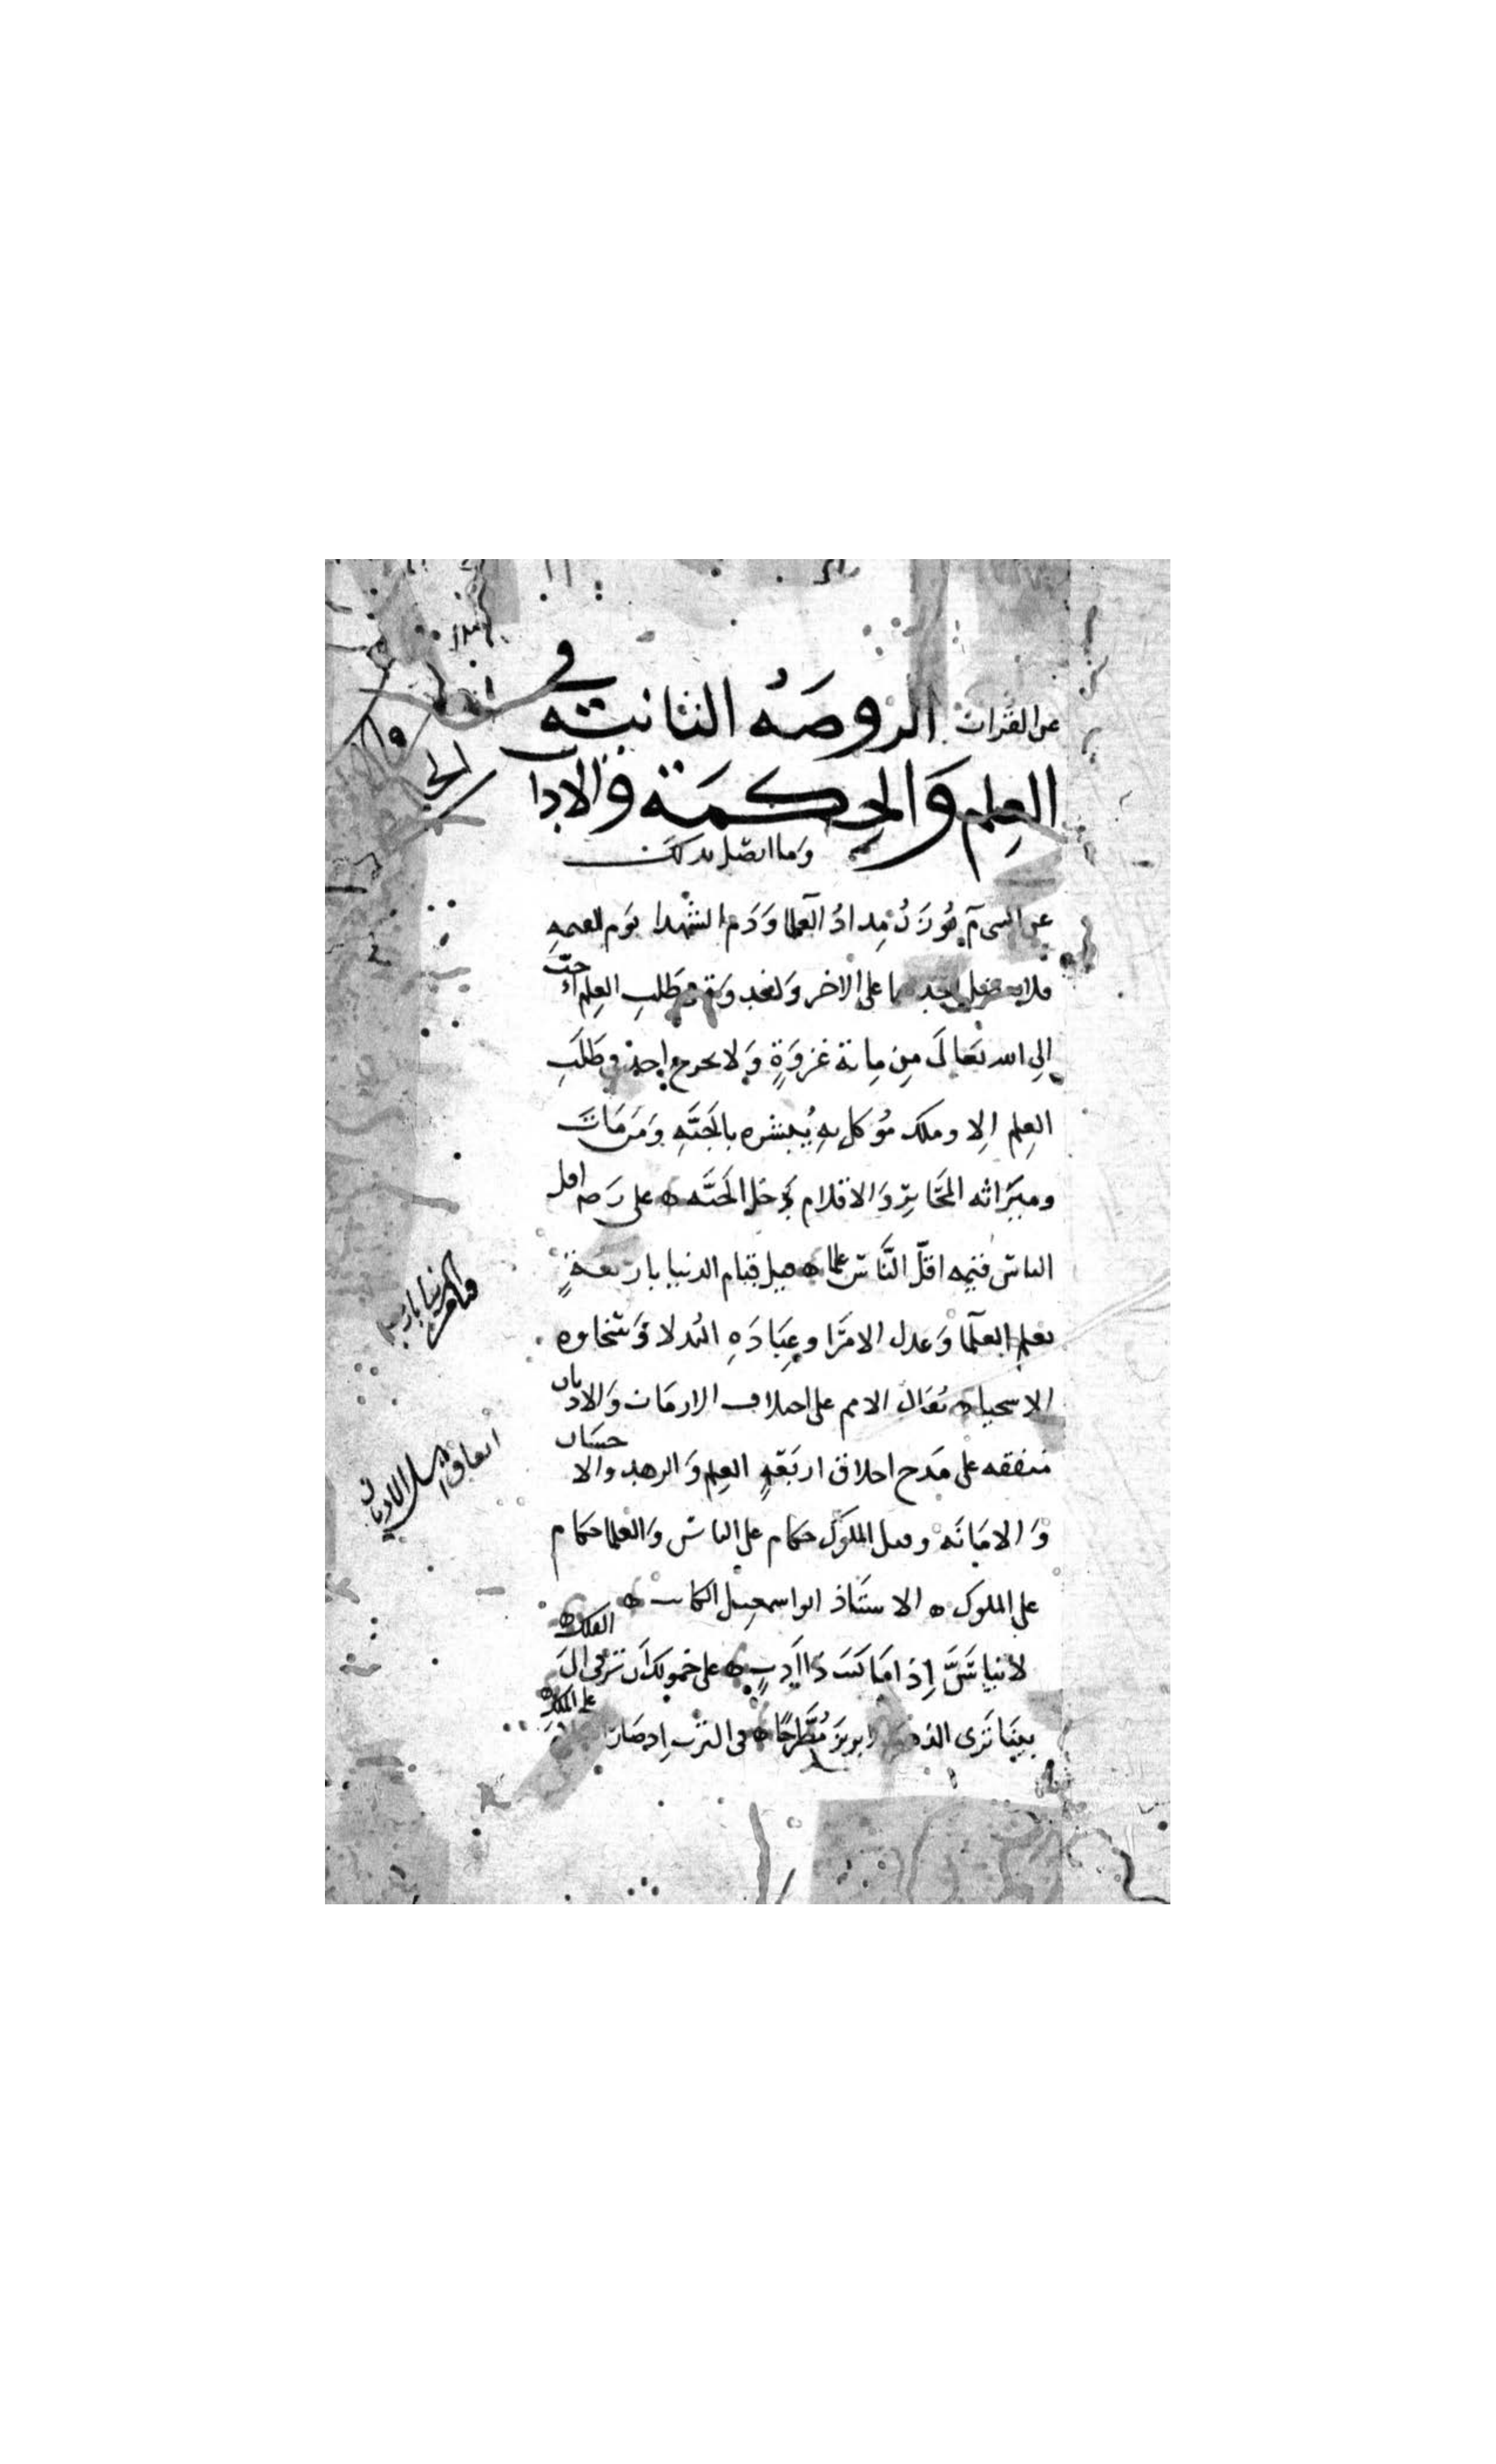 عن القرات الروضه الثانية في
العِلم وَالحِكمَة والادا
وَما اتصل بذلك
عن النبي م يُوزَنُ مِدادُ العلما وَدَم الشهدا يَوم القيمه
فلا يفضل احدهما على الاخر وَلغد وَة في طَلبِ العِلم احَبّ
الى الله تعَالَى مِن مِائة غزوَةٍ وَلا يخرج احد في طَلَبِ
العِلم الا وملك مُوَكل بِهِ يُبشره بالجَنَّهِ وَمَن مَاتَ
وميرَاثه المحَابِر وَالاقلام دَخل الجَنَّه ه على رَضه اقل
الناس قيمه اقلّ النَّاس علما ه قيل قِيام الدنيا بارَبعَةٍ
بعلم العلَما وَعدل الامرَا وعِبَادَهِ البُدلا وَسَخاوه
الاسخيا ه يُقال الامم على اختلاف الازمَان وَالاديان
متفقه على مَدح اخلاق اربَعَهٍ العِلم وَالزهد والاحسَان
وَالامَانَه وقيل الملوك حكام على الناس وَالعلما حكام
على الملوك ه الاستَاذ ابو اسمعيل الكاتب ه
لا تيأسَنَّ اِذا مَا كنتَ ذَا ادبٍ ه على خمولك اَن ترقى الى الفلك ه
بينَا تَرى الذهب الابريز مُطَّرحًا ه في الترب اِذ صَار على الملك
قيام الدنيا باربع
اتفاق اهل الاديان